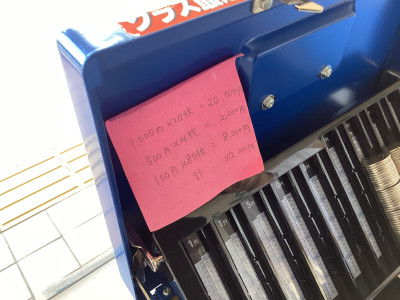 1,000円×20枚 = 20,000円
500円×4枚 = 2,000円
100円×80枚 = 8,000円
計 30,000円